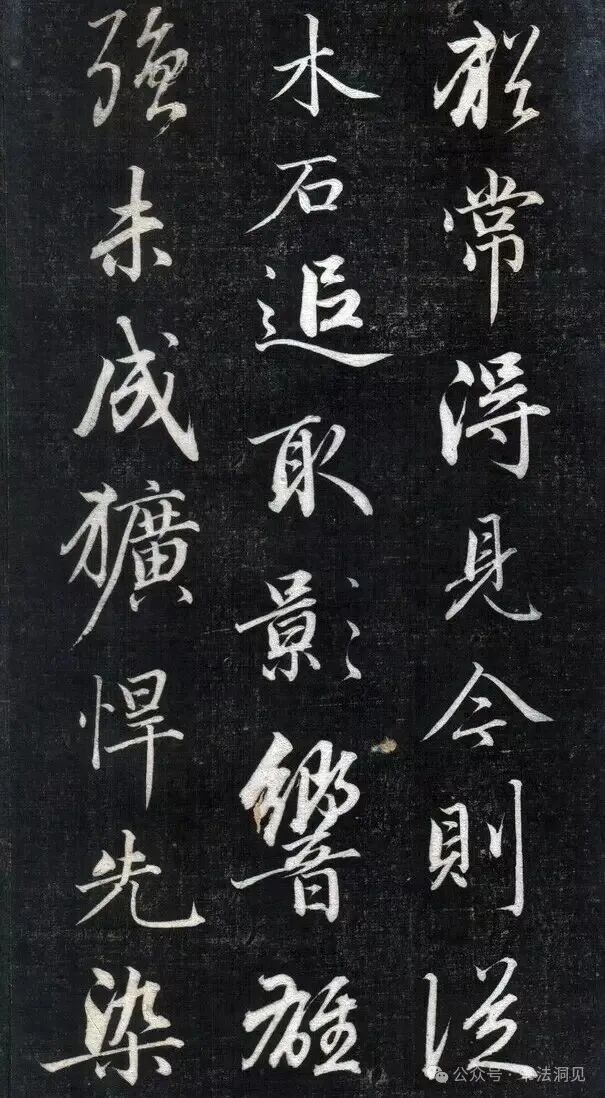 常得見今則從
木石追取影響雄
強未成獷悍先染
公众号·书法洞见